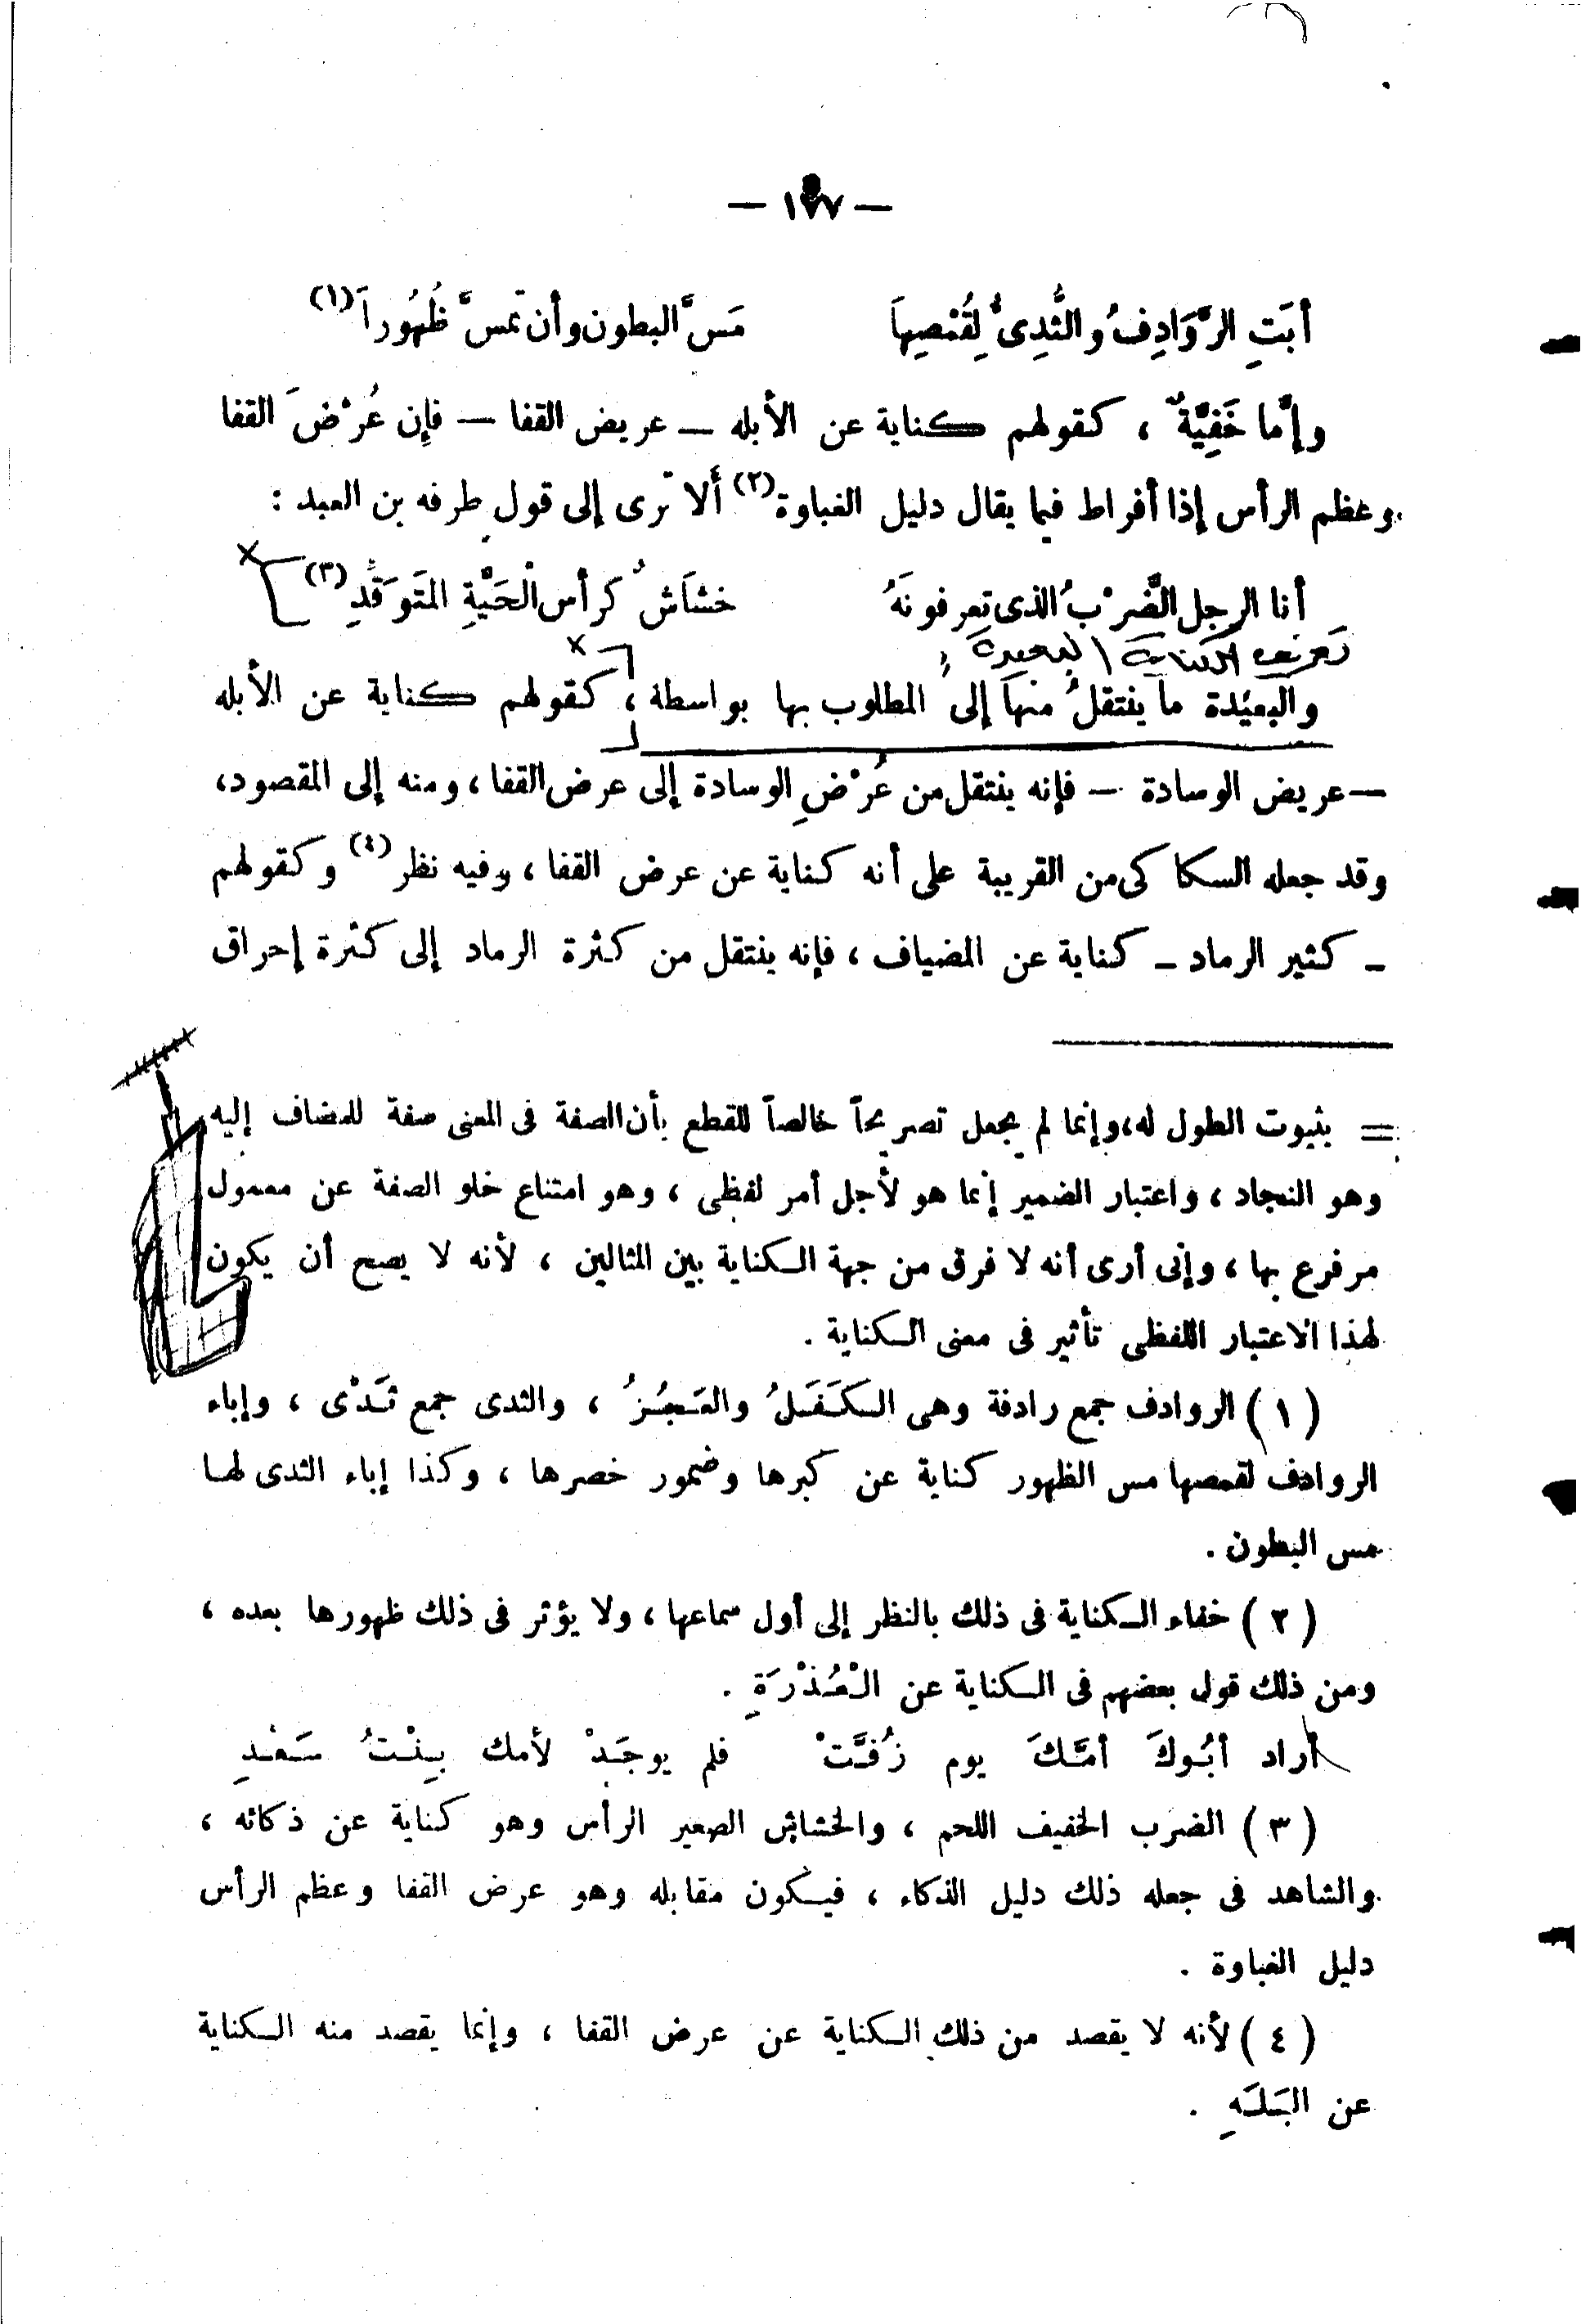 — ١٧٧ —
أبَتِ الرَّوَادِفُ والثُّدِىُّ لِقُمْصِهاَ مَسَّ البطون وأن تمسَّ ظُهُوراَ (١)
وإمَّا خَفِيَّةٌ ، كقولهم كناية عن الأبله — عريض القفا — فإن عُرْضَ القفا
وعظم الرأس إذا أفراط فيما يقال دليل الغباوة (٢) ألا ترى إلى قول طرفه بن العبد :
أنا الرجل الضَّرْبُ الذى تعرفونَهُ خشاَشٌ كرأس الْحَيَّةِ المَتَوَقِّدِ (٣)
تعريف الكناية البعيدة
والبعيْدة ما يفتقلُ منهاَ إلىُ المطلوب بها بواسطة ، كقولهم كناية عن الأبله
— عريض الوسادة — فإنه ينتقل من عُرْضِ الوسادة إلى عرض القفا ، ومنه إلى المقصود،
وقد جعله السكاكى من القريبة على أنه كناية عن عرض القفا ، وفيه نظر (٤) وكقولهم
— كثير الرماد — كناية عن المضياف ، فإنه ينتقل من كثرة الرماد إلى كثرة إحراق
= بثبوت الطول له، وإنما لم يجعل تصريحاً خالصاً للقطع بأن الصفة فى المعنى صفة للمضاف إليه
وهو النجاد ، واعتبار الضمير إنما هو لأجل أمر لفظى ، وهو امتناع خلو الصفة عن معمول
مرفرع بها ، وإنى أرى أنه لا فرق من جهة الكناية بين المثالين ، لأنه لا يصح أن يكون
لهذا الاعتبار اللفظى تأثير فى معنى الكناية .
( ١ ) الروادف جمع رادفة وهى الكَفَلُ والعَجُزُ ، والثدى جمع ثَدْى ، وإباء
الروادف لقمصها مس الظهور كناية عن كبرها وضمور خصرها ، وكذا إباء الثدى لها
مس البطون .
( ٢ ) خفاء الكناية فى ذلك بالنظر إلى أول سماعها ، ولا يؤثر فى ذلك ظهورها بعده ،
ومن ذلك قول بعضهم فى الكناية عن الْعُذْرَةِ .
أراد أبُوكَ أمَّكَ يوم زُفَّتْ فلم يوجَدْ لأمك بِنْتُ سَعْدِ
( ٣ ) الضرب الخفيف اللحم ، والخشاش الصغير الرأس وهو كناية عن ذكائه ،
والشاهد فى جعله ذلك دليل الذكاء ، فيكون مقابله وهو عرض القفا وعظم الرأس
دليل الغباوة .
( ٤ ) لأنه لا يقصد من ذلك الكناية عن عرض القفا ، وإنما يقصد منه الكناية
عن البَلَهِ .